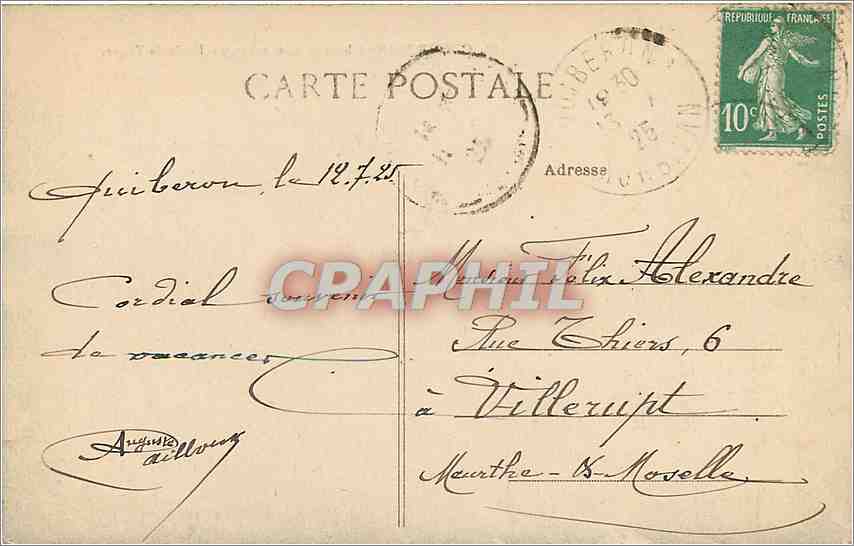 RÉPUBLIQUE FRANÇAISE
10c
POSTES
CARTE POSTALE
QUIBERON
18 30
25
MORBIHAN
Adresse
Quiberon, le 12.7.25
Cordial souvenir
de vacances
Auguste
CPAPHIL
Monsieur Félix Alexandre
Rue Thiers, 6
à Villerupt
Meurthe-&-Moselle